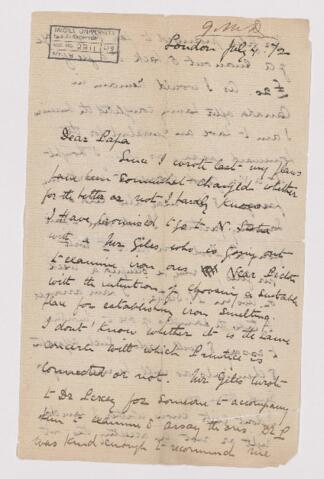 G.M.D
McGILL UNIVERSITY
ACC. NO. 2211
London July 4 72
Dear Papa
Since I wrote last my plans
have been somewhat changed whether
for the better or not I hardly know
I have promised to go to N. Scotia
with a Mr Giles who is going out
to examine iron ores Near Pictou
with the intention of choosing a suitable
place for establishing iron smelting.
I don't know whether it is the same
concern with which is
connected or not. Mr Giles wrote
to Dr Percy for someone to accompany
him to examine & assay the ores Dr P.
was kind enough to recommend me